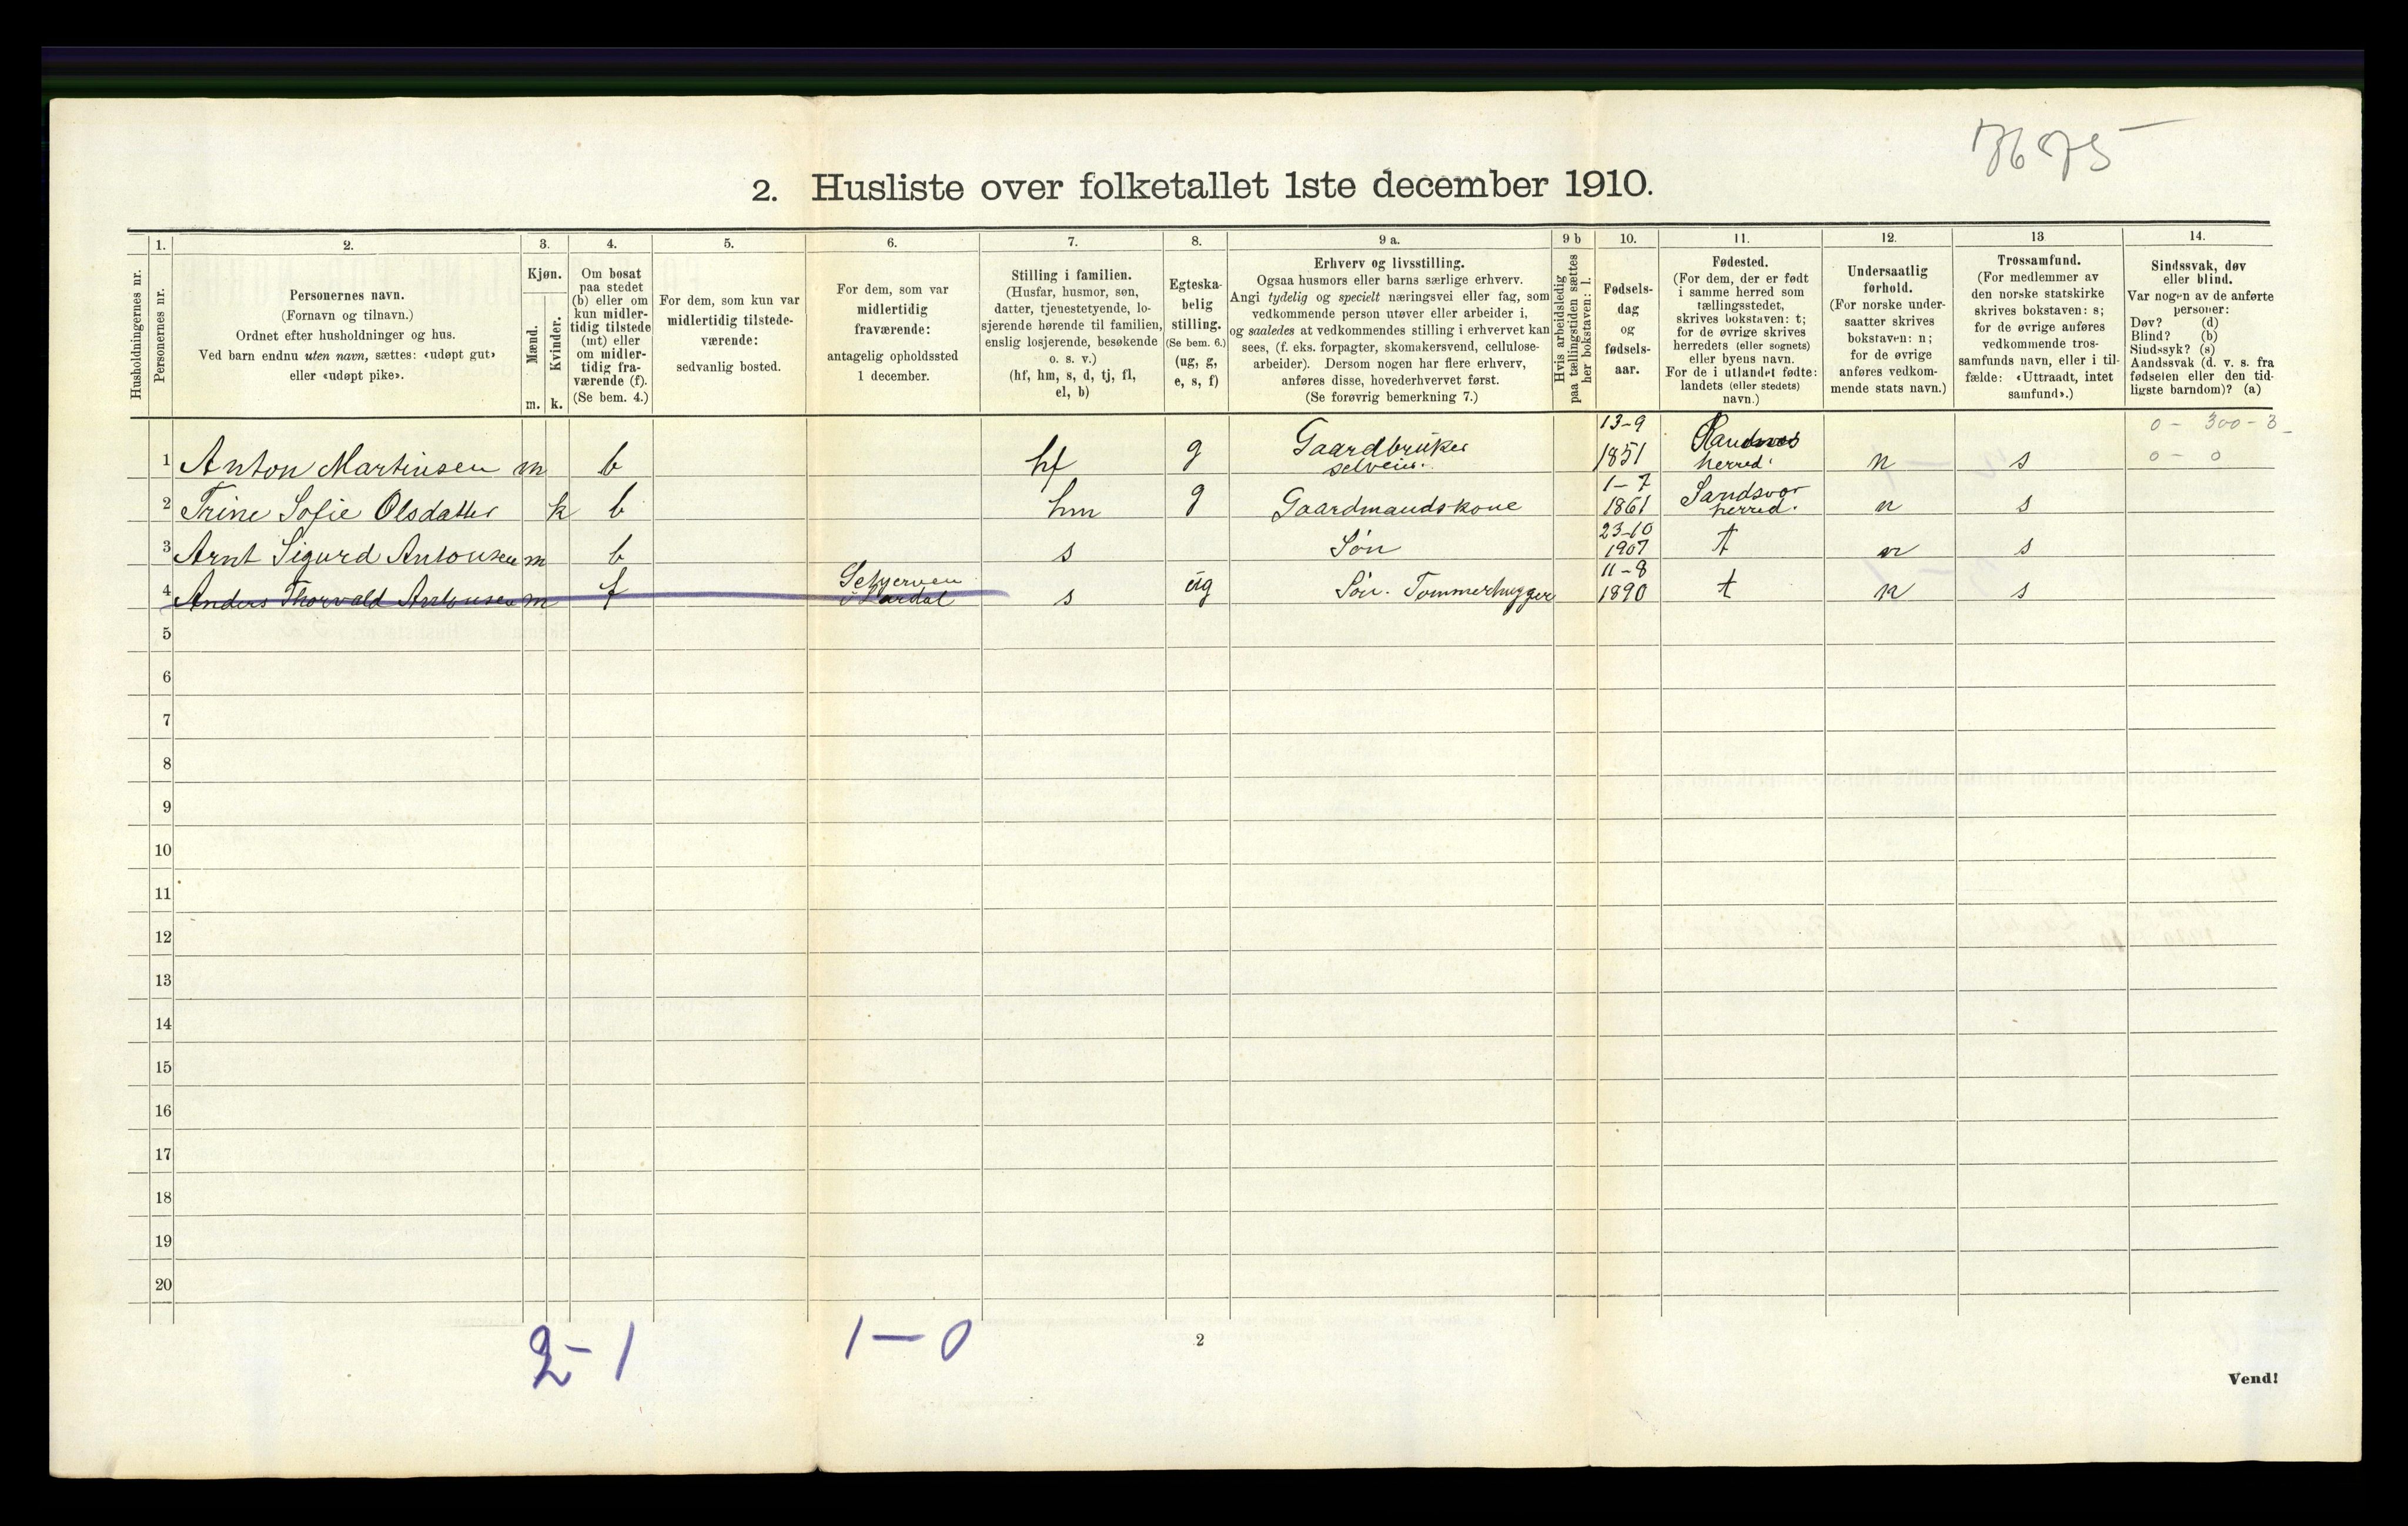 2. Husliste over folketallet 1ste december 1910.
1. 2. 3. 4. 5. 6. 7. 8. 9 a. 9 b 10. 11. 12. 13 14.
Husholdningernes nr.
Personernes nr.
Personernes navn.
(Fornavn og tilnavn.)
Ordnet efter husholdninger og hus.
Ved barn endnu uten navn, sættes: «udøpt gut»
eller «udøpt pike».
Kjøn.
Mænd.
Kvinder.
m. k.
Om bosat
paa stedet
(b) eller om
kun midler-
tidig tilstede
(mt) eller
om midler-
tidig fra-
værende (f).
(Se bem. 4.)
For dem, som kun var
midlertidig tilstede-
værende:
sedvanlig bosted.
For dem, som var
midlertidig
fraværende:
antagelig opholdssted
1 december.
Stilling i familien.
(Husfar, husmor, søn,
datter, tjenestetyende, lo-
sjerende hørende til familien,
enslig losjerende, besøkende
o. s. v.)
(hf, hm, s, d, tj, fl,
el, b)
Egteska-
belig
stilling.
(Se bem. 6.)
(ug, g,
e, s, f)
Erhverv og livsstilling.
Ogsaa husmors eller barns særlige erhverv.
Angi tydelig og specielt næringsvei eller fag, som
vedkommende person utøver eller arbeider i,
og saaledes at vedkommendes stilling i erhvervet kan
sees, (f. eks. forpagter, skomakersvend, cellulose-
arbeider). Dersom nogen har flere erhverv,
anføres disse, hovederhvervet først.
(Se forøvrig bemerkning 7.)
Hvis arbeidsledig
paa tællingstiden sættes
her bokstaven: l.
Fødsels-
dag
og
fødsels-
aar.
Fødested.
(For dem, der er født
i samme herred som
tællingsstedet,
skrives bokstaven: t;
for de øvrige skrives
herredets (eller sognets)
eller byens navn.
For de i utlandet fødte:
landets (eller stedets)
navn.)
Undersaatlig
forhold.
(For norske under-
saatter skrives
bokstaven: n;
for de øvrige
anføres vedkom-
mende stats navn.)
Trossamfund.
(For medlemmer av
den norske statskirke
skrives bokstaven: s;
for de øvrige anføres
vedkommende tros-
samfunds navn, eller i til-
fælde: «Uttraadt, intet
samfund».)
Sindssvak, døv
eller blind.
Var nogen av de anførte
personer:
Døv? (d)
Blind? (b)
Sindssyk? (s)
Aandssvak (d. v. s. fra
fødselen eller den tid-
ligste barndom)? (a)
0 - 300 - 3
0 - 0
1 Anton Martinsen m b hf g Gaardbruker selveier. 13-9 1851 herred. n s
2 Trine Sofie Olsdatter k b hm g Gaardmandskone 1-7 1861 Sandsvær herred. n s
3 Arnt Sigurd Antonsen m b s Søn 23-10 1907 t n s
4 Anders Thorvald Antonsen m f i Lardal s ug Søn. Tømmerhugger 11-8 1890 t n s
5
6
7
8
9
10
11
12
13
14
15
16
17
18
19
20
2-1 1-0
2
Vend!